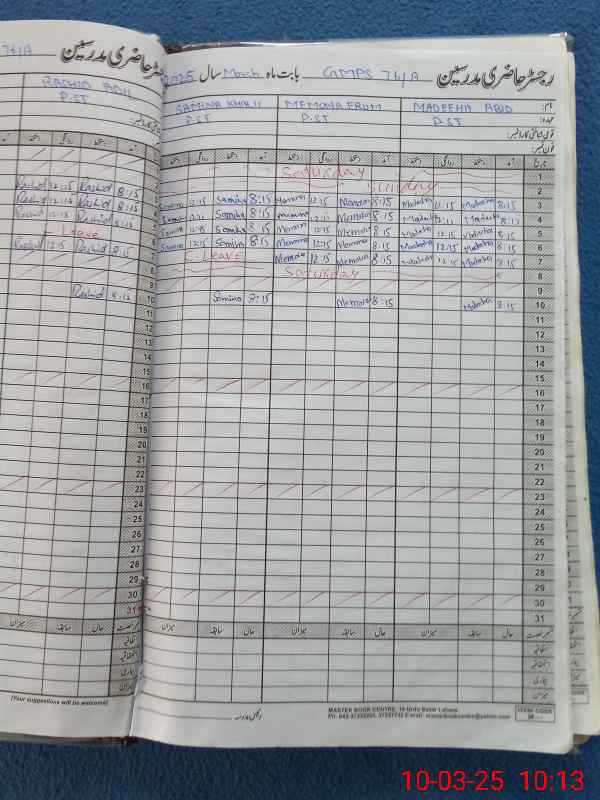 76/A
رجسٹر حاضری مدرسین
RASHID ADIL
P.ST
رجسٹر حاضری مدرسین GMPS 76/A بابت ماہ March سال 2025
نام: MADEEHA ABID MEMONA ERUM SAMINA KHALIL
عہدہ: P.ST P.ST P.ST
قومی شناختی کارڈ نمبر:
فون نمبر:
تاریخ آمد دستخط روانگی دستخط آمد دستخط روانگی دستخط آمد دستخط روانگی دستخط
1 Saturday
2 Sunday
3 8:15 Madeeha 12:15 Madeeha 8:15 Memona 12:15 Memona 8:15 Samina 12:15 Samina
4 8:15 Madeeha Madeeha 8:15 Memona Memona 8:15 Samina Samina
5 8:15 Madeeha 12:15 Madeeha 8:15 Memona 12:15 Memona 8:15 Samina Samina
6 8:15 Madeeha 12:15 Madeeha 8:15 Memona 12:15 Memona 8:15 Samina 12:15 Samina
7 8:15 Madeeha 12:15 Madeeha 8:15 Memona 12:15 Memona C. Leave
8 Saturday
9
10 8:15 Madeeha 8:15 Memona 8:15 Samina
11
12
13
14
15
16
17
18
19
20
21
22
23
24
25
26
27
28
29
30
31
8:15 Rashid 12:15 Rashid
8:15 Rashid Rashid
8:15 Rashid 12:15 Rashid
Leave
8:15 Rashid 12:15 Rashid
8:15 Rashid
10
11
12
13
14
15
16
17
18
19
20
21
22
23
24
25
26
27
28
29
30
31
حال سابقہ میزان حال سابقہ میزان حال سابقہ میزان
اتفاقیہ
استحقاقیہ
بیماری
میزان
(Your suggestions will be welcomed)
MASTER BOOK CENTRE, 16 Urdu Bazar Lahore.
ITEM CODE
10-03-25 10:13